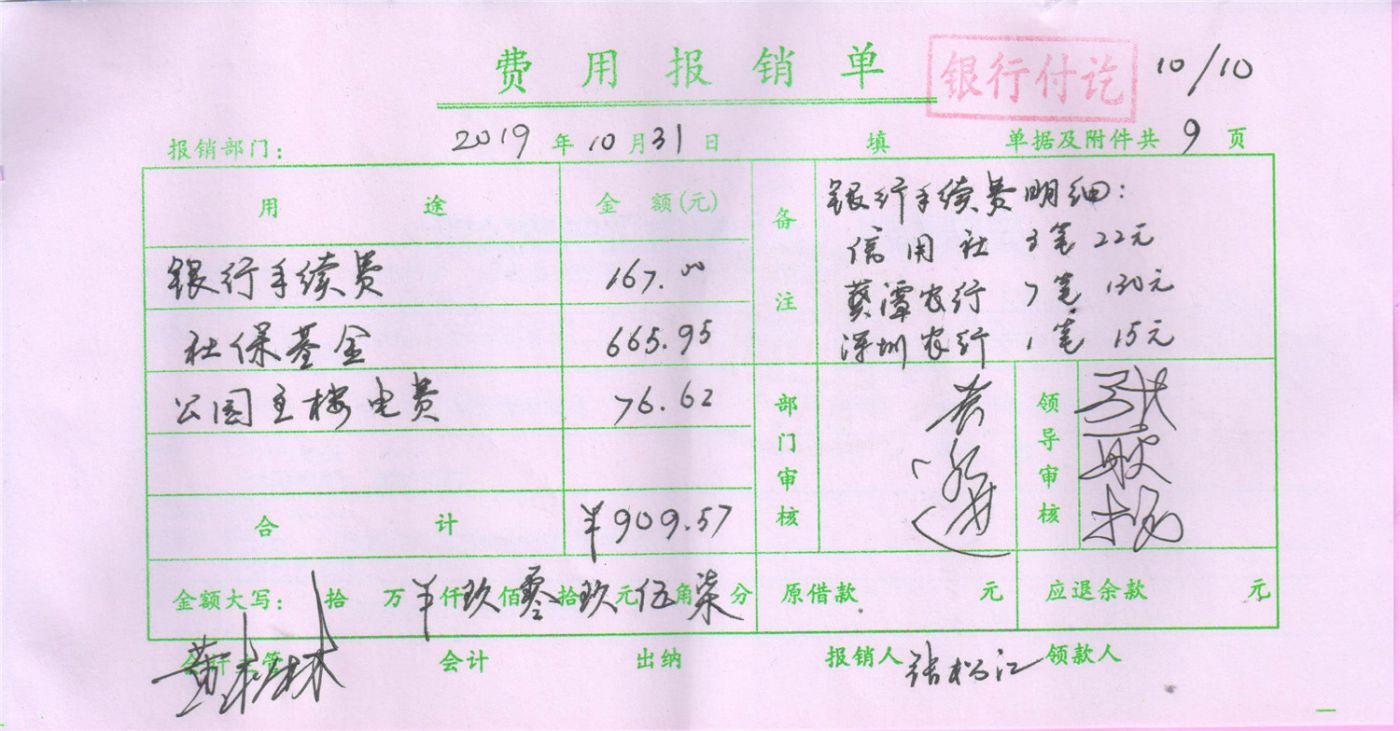 费用报销单 银行付讫 10/10
报销部门: 2019年10月31日 填 单据及附件共9页
用途 金额(元) 备注
银行手续费明细:
信用社 3笔 22元
葵潭农行 7笔 130元
深圳农行 1笔 15元
银行手续费 167.00
社保基金 665.95
公园主楼电费 76.62
部门审核 领导审核
合计 ¥909.57
金额大写: 拾万¥仟玖佰零拾玖元伍角柒分 原借款 元 应退余款 元
会计主管 会计 出纳 报销人 张松江 领款人